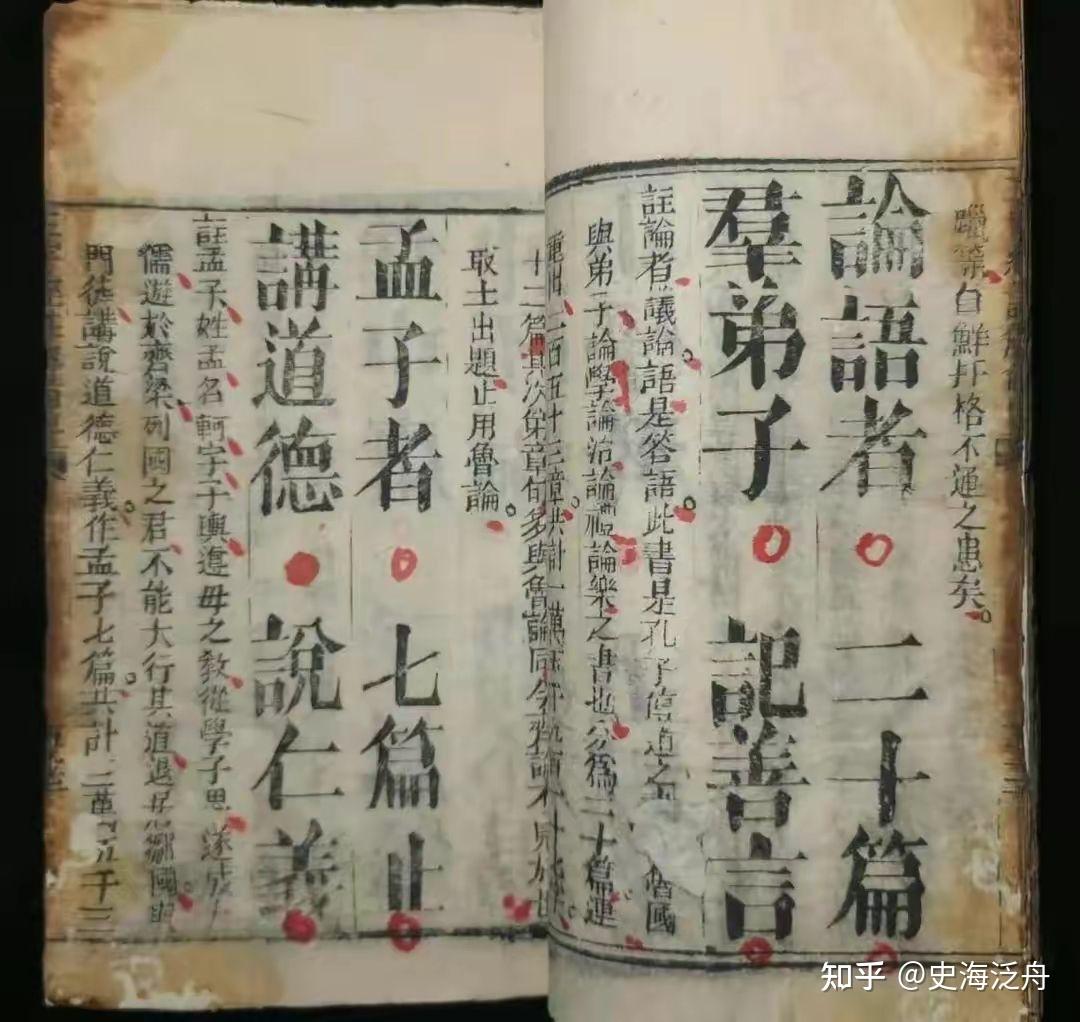 躐等自鮮扞格不通之患矣。
論語者 二十篇
羣弟子 記善言
註論者議論語是答語此書是孔子
國
與弟子論學論治論禮論樂之書也分爲二十篇連
二百五十三章共
十二篇其次第章句多與魯論同今
取士出題止用魯論。
孟子者 七篇止
講道德 說仁義
註孟子姓孟名軻字子輿遵母之教從學子思遂成大
儒遊於齊梁列國之君不能大行其道退居鄒國與
門徒講說道德仁義作孟子七篇共計三萬四千三
知乎 @史海泛舟